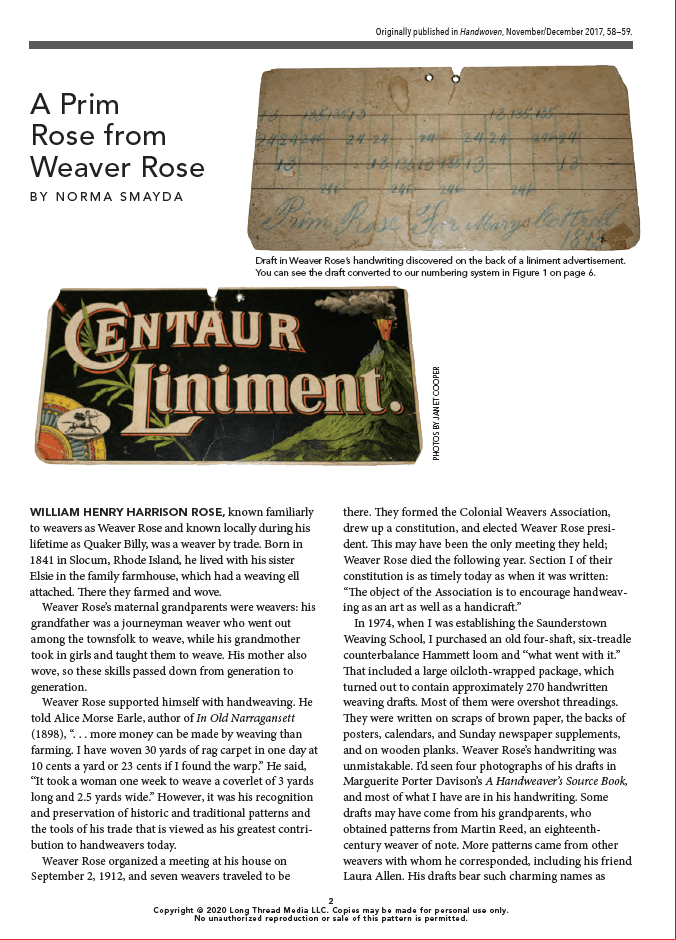 Originally published in Handwoven, November/December 2017, 58–59.
A Prim
Rose from
Weaver Rose
BY NORMA SMAYDA
Prim Rose For Marys Cottrell
Draft in Weaver Rose's handwriting discovered on the back of a liniment advertisement.
You can see the draft converted to our numbering system in Figure 1 on page 6.
CENTAUR
Liniment.
PHOTOS BY JANET COOPER
WILLIAM HENRY HARRISON ROSE, known familiarly
to weavers as Weaver Rose and known locally during his
lifetime as Quaker Billy, was a weaver by trade. Born in
1841 in Slocum, Rhode Island, he lived with his sister
Elsie in the family farmhouse, which had a weaving ell
attached. There they farmed and wove.
Weaver Rose's maternal grandparents were weavers: his
grandfather was a journeyman weaver who went out
among the townsfolk to weave, while his grandmother
took in girls and taught them to weave. His mother also
wove, so these skills passed down from generation to
generation.
Weaver Rose supported himself with handweaving. He
told Alice Morse Earle, author of In Old Narragansett
(1898), “. . . more money can be made by weaving than
farming. I have woven 30 yards of rag carpet in one day at
10 cents a yard or 23 cents if I found the warp.” He said,
“It took a woman one week to weave a coverlet of 3 yards
long and 2.5 yards wide.” However, it was his recognition
and preservation of historic and traditional patterns and
the tools of his trade that is viewed as his greatest contri-
bution to handweavers today.
Weaver Rose organized a meeting at his house on
September 2, 1912, and seven weavers traveled to be
there. They formed the Colonial Weavers Association,
drew up a constitution, and elected Weaver Rose presi-
dent. This may have been the only meeting they held;
Weaver Rose died the following year. Section I of their
constitution is as timely today as when it was written:
“The object of the Association is to encourage handweav-
ing as an art as well as a handicraft.”
In 1974, when I was establishing the Saunderstown
Weaving School, I purchased an old four-shaft, six-treadle
counterbalance Hammett loom and “what went with it.”
That included a large oilcloth-wrapped package, which
turned out to contain approximately 270 handwritten
weaving drafts. Most of them were overshot threadings.
They were written on scraps of brown paper, the backs of
posters, calendars, and Sunday newspaper supplements,
and on wooden planks. Weaver Rose's handwriting was
unmistakable. I'd seen four photographs of his drafts in
Marguerite Porter Davison's A Handweaver's Source Book,
and most of what I have are in his handwriting. Some
drafts may have come from his grandparents, who
obtained patterns from Martin Reed, an eighteenth-
century weaver of note. More patterns came from other
weavers with whom he corresponded, including his friend
Laura Allen. His drafts bear such charming names as
2
Copyright © 2020 Long Thread Media LLC. Copies may be made for personal use only.
No unauthorized reproduction or sale of this pattern is permitted.